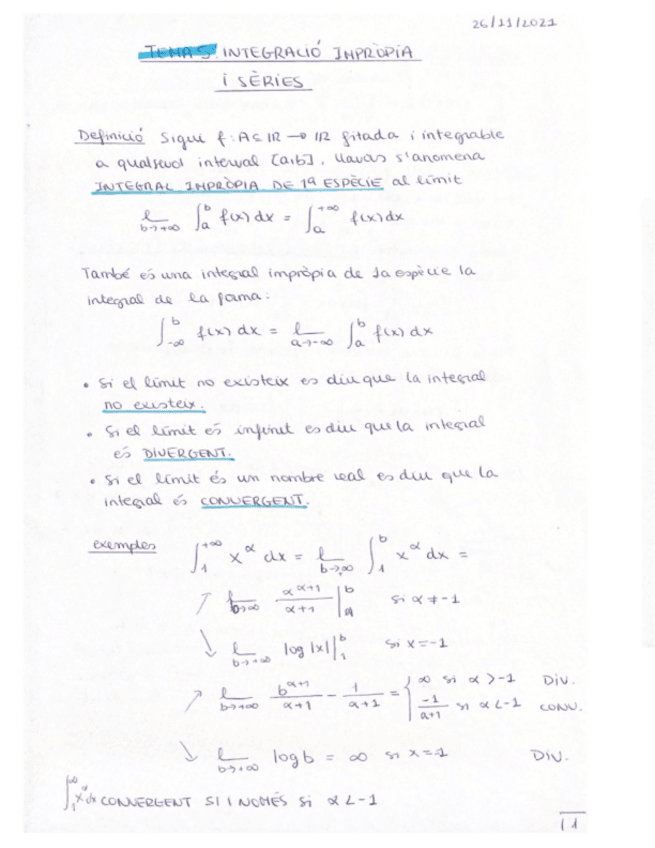 26/11/2021
TEMA 5: INTEGRACIÓ IMPRÒPIA
I SÈRIES
Definició Sigui f: A⊆ℝ → ℝ fitada i integrable
a qualsevol interval [a,b], llavors s'anomena
INTEGRAL IMPRÒPIA DE 1ª ESPÈCIE al límit
l_{b→+∞} ∫_a^b f(x) dx = ∫_a^{+∞} f(x) dx
També és una integral impròpia de 1a espècie la
integral de la forma:
∫_{-∞}^b f(x) dx = l_{a→-∞} ∫_a^b f(x) dx
• Si el límit no existeix es diu que la integral
no existeix.
• Si el límit és infinit es diu que la integral
és DIVERGENT.
• Si el límit és un nombre real es diu que la
integral és CONVERGENT.
exemples ∫_1^{+∞} x^α dx = l_{b→∞} ∫_1^b x^α dx =
↗ l_{b→∞} α^{α+1}/(α+1) |^b si α ≠ -1
↘ l_{b→+∞} log |x| |_1^b si x = -1
↗ l_{b→+∞} b^{α+1}/(α+1) - 1/(α+1) = { ∞ si α > -1 DIV.
-1/(α+1) si α < -1 CONV.
↘ l_{b→+∞} log b = ∞ si x = -1 DIV.
∫_1^{+∞} x^α dx CONVERGENT SI I NOMÉS SI α < -1
11